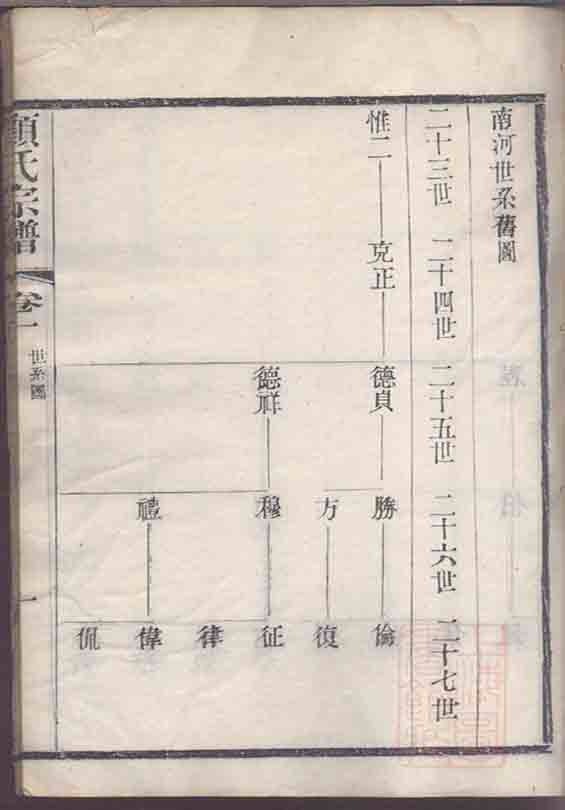 南河世系舊圖
二十三世 二十四世 二十五世 二十六世 二十七世
惟二 克正 德貞 勝 倫
方 復
德祥 穆 征
律
禮 偉
侃
顧氏宗譜 卷一 世系圖 一